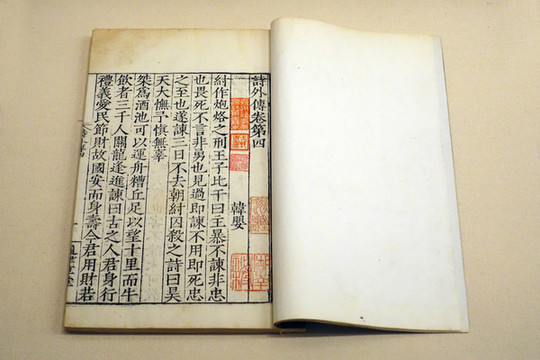 詩外傳卷第四
韓嬰
紂作炮烙之刑王子比干曰主暴不諫非忠
也畏死不言非勇也見過即諫不用即死忠
之至也遂諫三日不去朝紂囚殺之詩曰昊
天大憮予慎無辜
桀爲酒池可以運舟糟丘足以望十里而牛
飲者三千人關龍逄進諫曰古之人君身行
禮義愛民節財故國安而身壽今君用財若